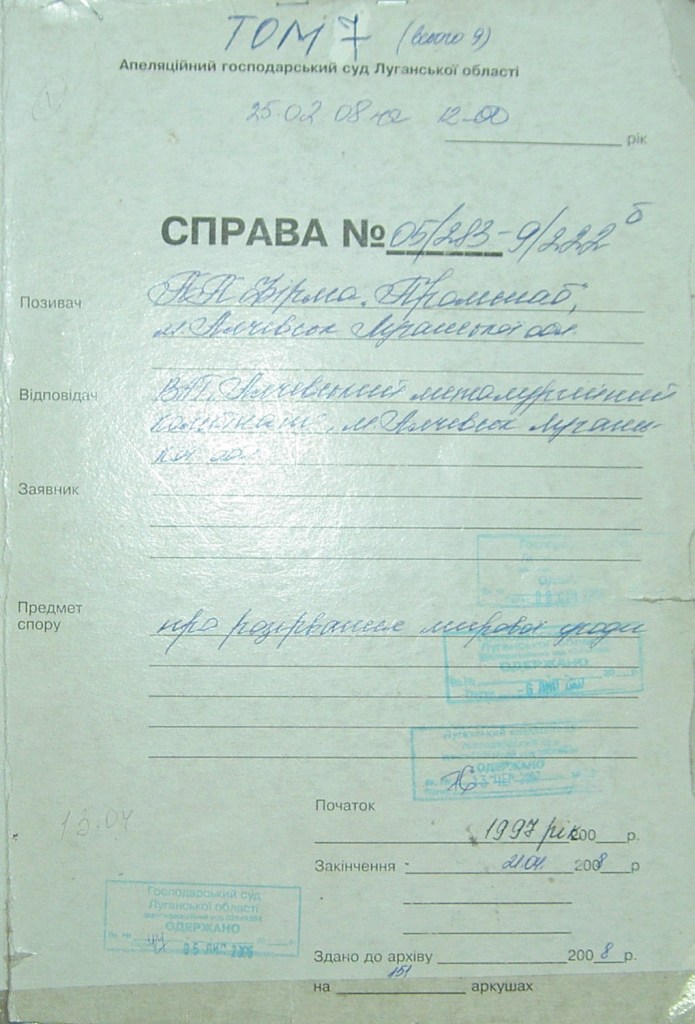 ТОМ 7 (всього 9)
Апеляційний господарський суд Луганської області
25.02.08 на 12-00
рік
СПРАВА № 05/283-9/222 б
Позивач ПП Фірма "Промснаб",
м. Алчевськ Луганської обл.
Відповідач ВАТ "Алчевський металургійний
комбінат", м. Алчевськ Лугансь-
кої обл.
Заявник
Предмет
спору про розірвання мирової угоди
Луганської
ОДЕРЖАНО
ОДЕРЖАНО
Початок
13.04
1997 рік 200 р.
Закінчення 21.04. 2008 р
Господарський суд
Луганської області
ОДЕРЖАНО
Здано до архіву 2008 р.
на 151 аркушах